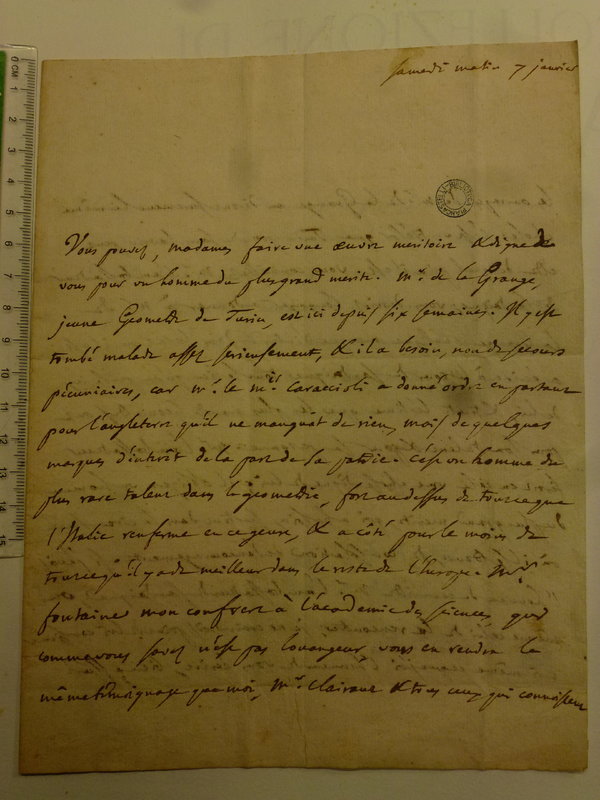 samedi matin 7 janvier
Vous pouvez, madame, faire une œuvre meritoire & digne de
vous pour un homme du plus grand merite. mr. de la Grange,
jeune Geometre de Turin, est ici depuis six semaines. Il y est
tombé malade assez serieusement, & il a besoin, non de secours
pécuniaires, car mr. le mis. Caraccioli a donné ordre en partant
pour l'angleterre qu'il ne manquât de rien, mais de quelques
marques d'interêt de la part de sa patrie. c'est un homme du
plus rare talent dans la geometrie, fort au dessus de tout ce que
l'Italie renferme en ce genre, & a côté pour le moins de
tout ce qu'il y a de meilleur dans le reste de l'Europe. Mr.
fontaine mon confrere à l'académie des sciences, qui
comme vous savez n'est pas louangeur, vous en rendra le
même témoignage que moi, mr. Clairaut & tous ceux qui connoissent
BIBLIOTECA PIANCASTELLI
0 CM 1 2 3 4 5 6 7 8 9 10 11 12 13 14 15